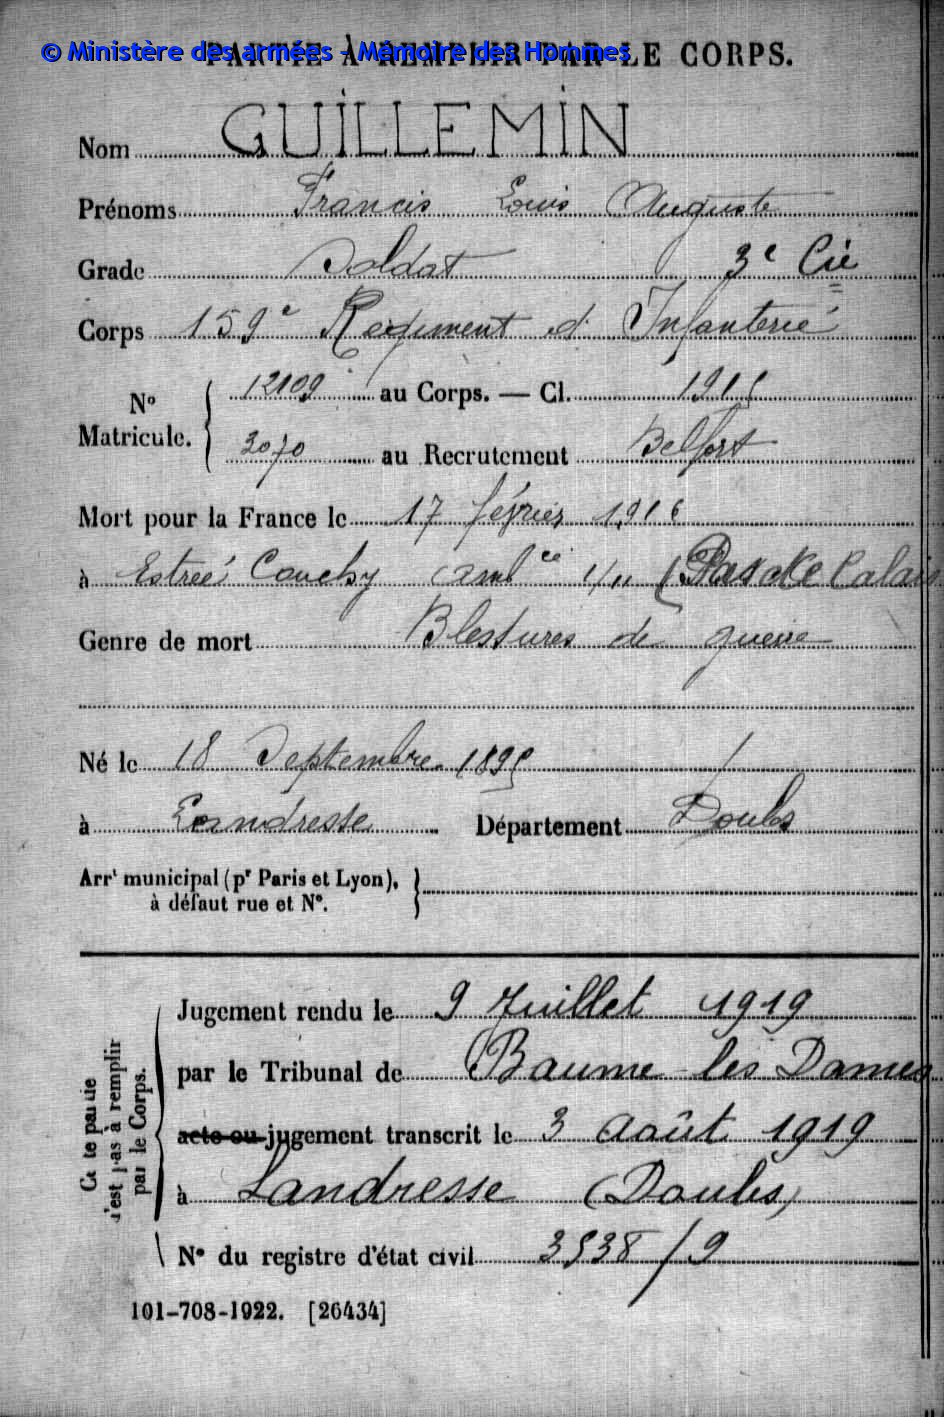 © Ministère des armées - Mémoire des Hommes
PARTIE À REMPLIR PAR LE CORPS.
Nom GUILLEMIN
Prénoms Francis Louis Auguste
Grade Soldat 3e Cie
Corps 159e Régiment d'Infanterie
No Matricule. 12109 au Corps. — Cl. 1915
3070 au Recrutement Belfort
Mort pour la France le 17 février 1916
à Estreé Cauchy ambce (Pas de Calais
Genre de mort Blessures de guerre
Né le 18 Septembre 1895
à Landresse Département Doubs
Arrt municipal (pr Paris et Lyon),
à défaut rue et No.
Cette partie
n'est pas à remplir
par le Corps.
Jugement rendu le 9 Juillet 1919
par le Tribunal de Baume les Dames
acte ou jugement transcrit le 3 Août 1919
à Landresse (Doubs)
No du registre d'état civil 3538/9
101-708-1922. [26434]